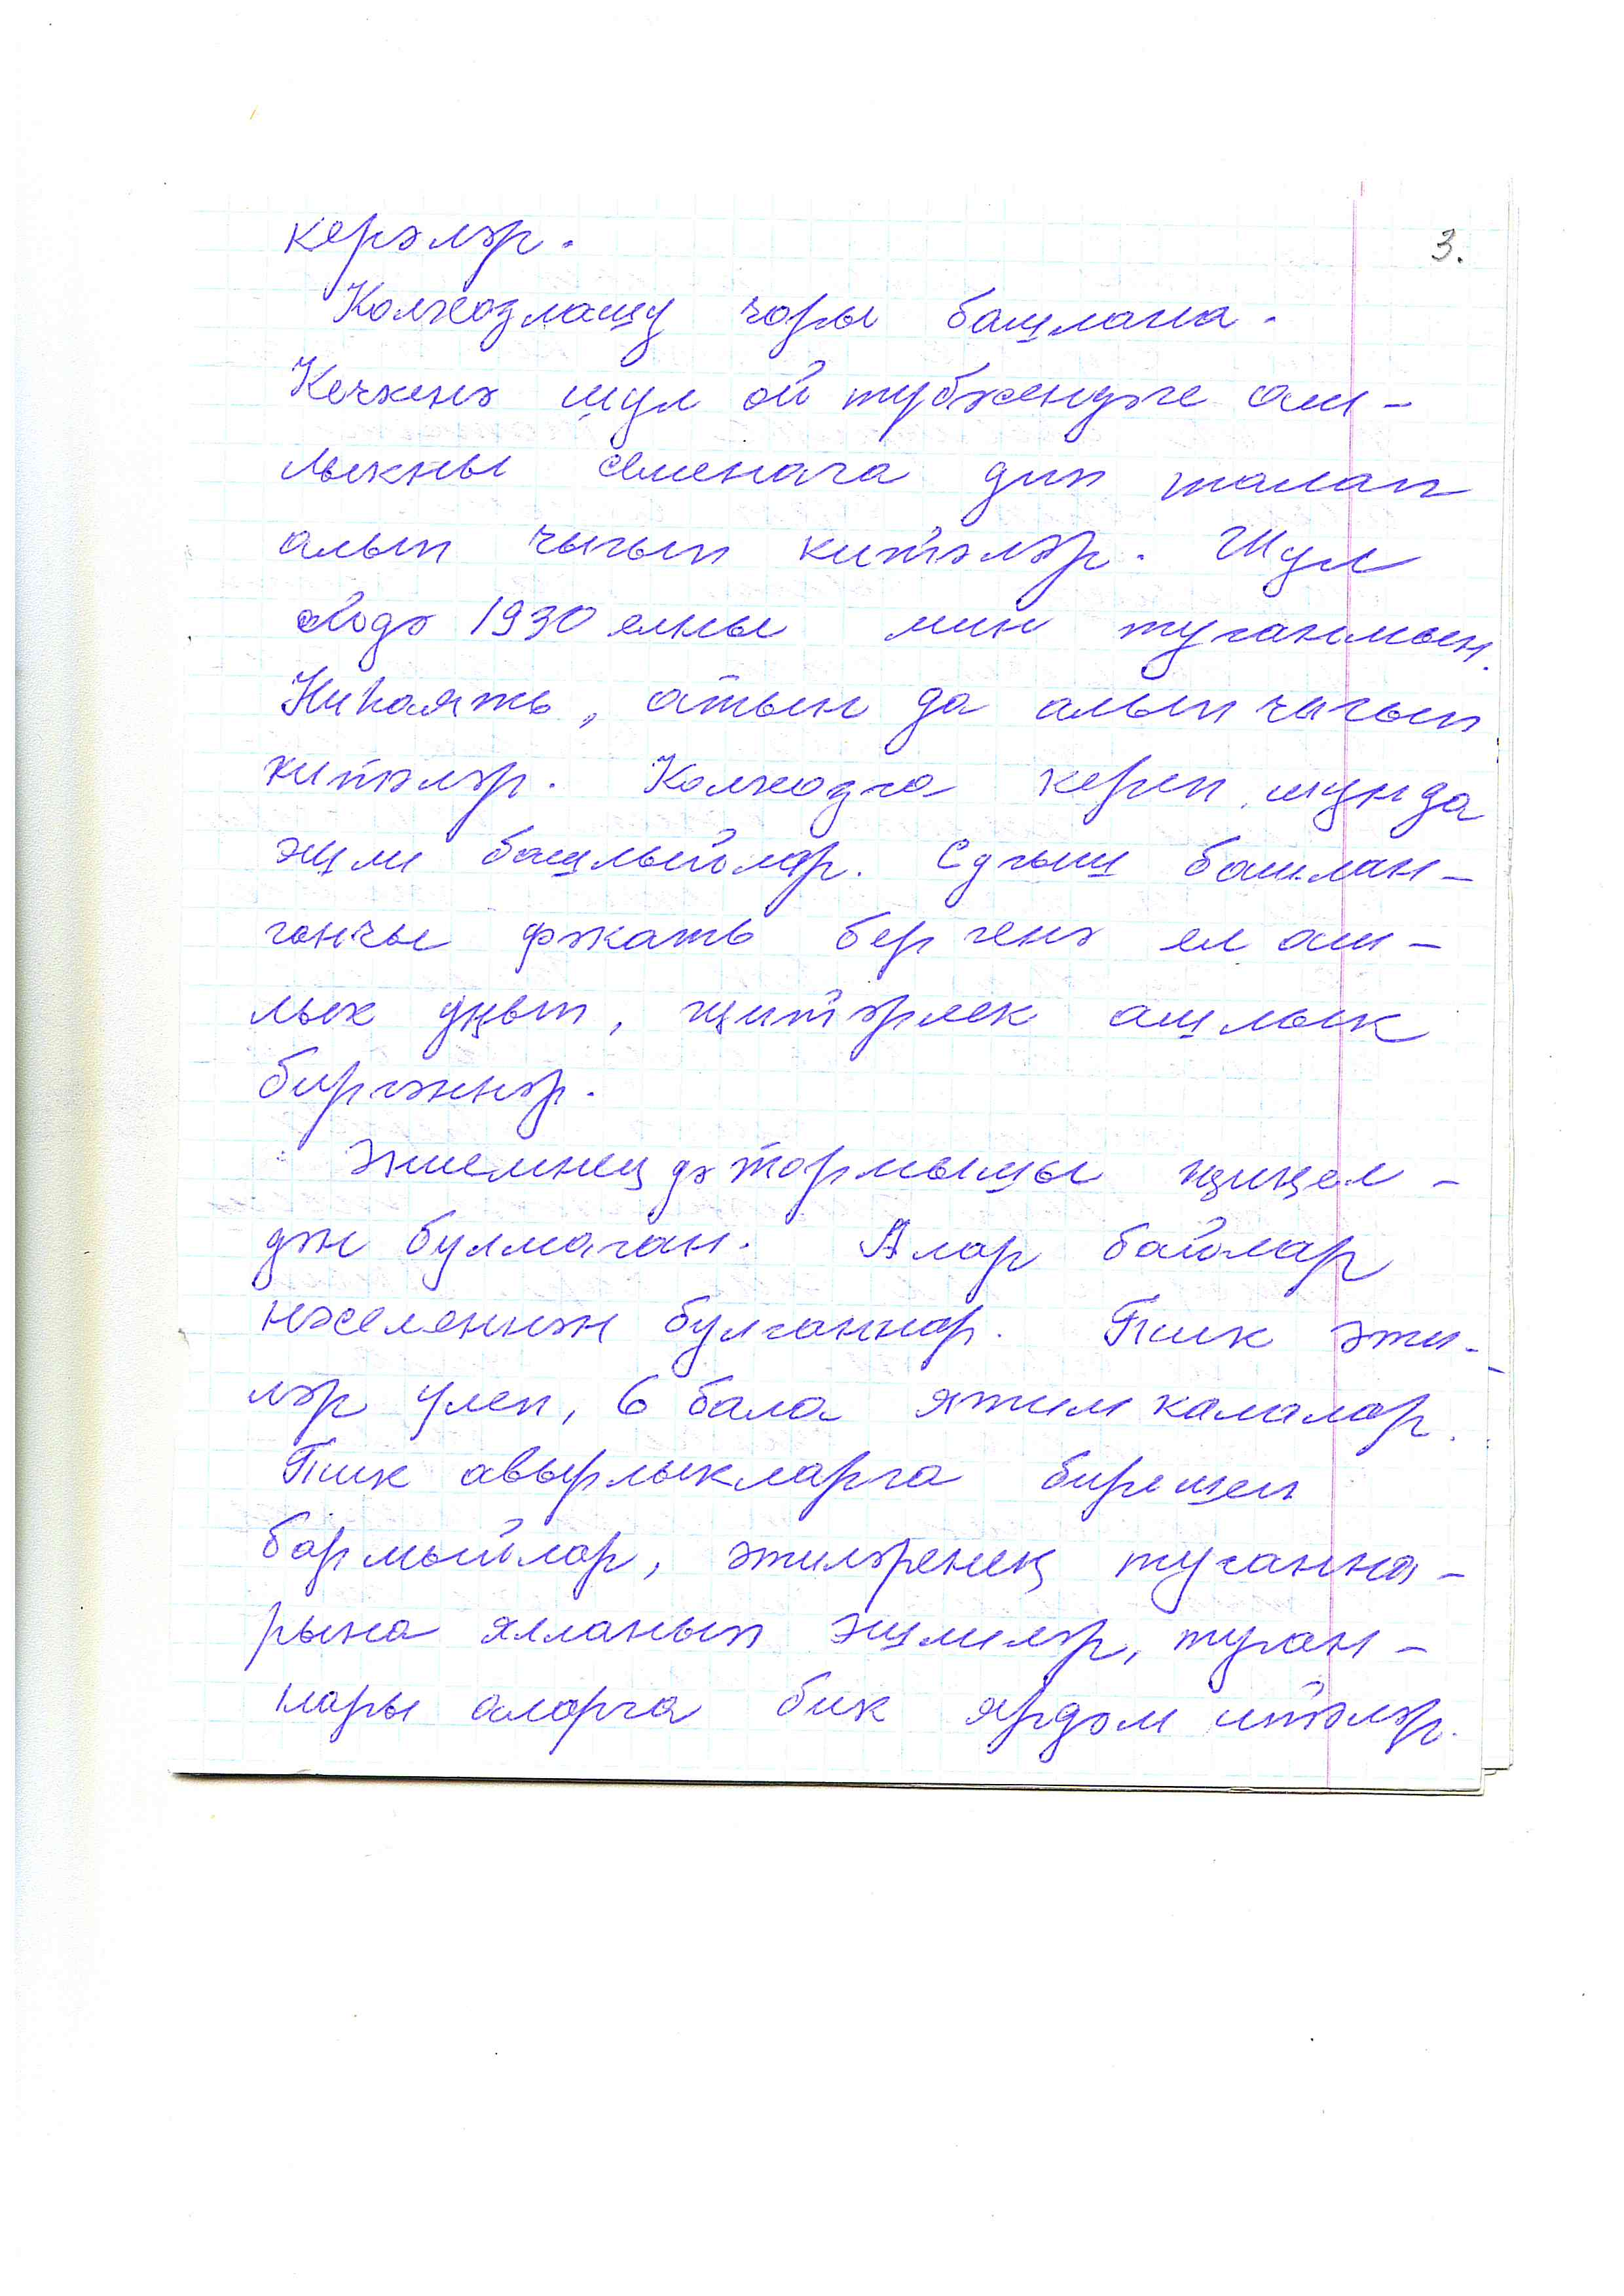 керәләр.
3.
Колхозлашу чоры башлана.
Кечкенә шул өй түбәсендәге аш-
лыкны семенага дип талап
алып чыгып китәләр. Шул
өйдә 1930 елны мин туганмын.
Ниһаять, атын да алып чыгып
китәләр. Колхозга кереп шунда
эшли башлыйлар. Сугыш башлан-
ганчы фәкать бер генә ел аш-
лык уңып, җитәрлек ашлык
биргәннәр.
Әниемнең дә тормышы җиңел-
дән булмаган. Алар байлар
нәселеннән булганнар. Тик әти-
ләр үлеп, 6 бала ятим калалар.
Тик авырлыкларга бирешеп
бармыйлар, әтиләренең туганна-
рына ялланып эшлиләр, туган-
нары аларга бик ярдәм итәләр.